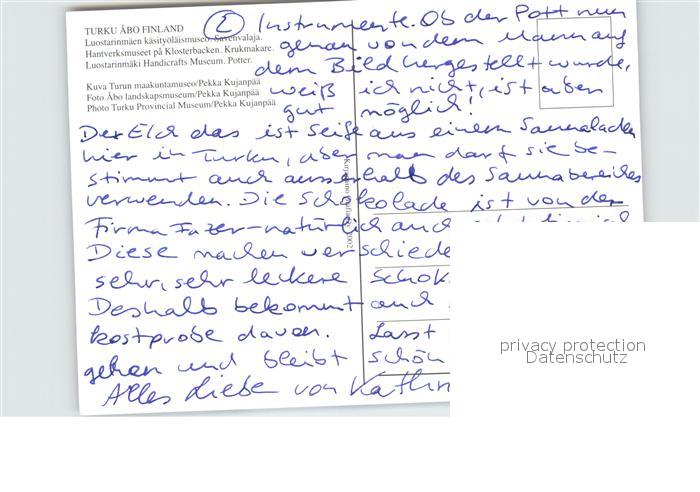 TURKU ÅBO FINLAND
Luostarinmäen käsityöläismuseo. Savenvalaja.
Hantverksmuseet på Klosterbacken. Krukmakare.
Luostarinmäki Handicrafts Museum. Potter.
Kuva Turun maakuntamuseo/Pekka Kujanpää
Foto Åbo landskapsmuseum/Pekka Kujanpää
Photo Turku Provincial Museum/Pekka Kujanpää
2 Instrumente. Ob der Pott nun
genau von dem Mann auf
dem Bild hergestellt wurde,
weiß ich nicht, ist aber
gut möglich!
Der Elch das ist Seife aus einem Saunaladen
hier in Turku, aber man darf sie be-
stimmt auch ausserhalb des Saunabereiches
verwenden. Die Schokolade ist von der
Firma Fazer-natürlich auch
Diese machen verschiede
sehr, sehr leckere Schok
Deshalb bekommt auch
Kostprobe davon. Lasst
gehen und bleibt schön
Alles Liebe von Kathr
2002
privacy protection
Datenschutz